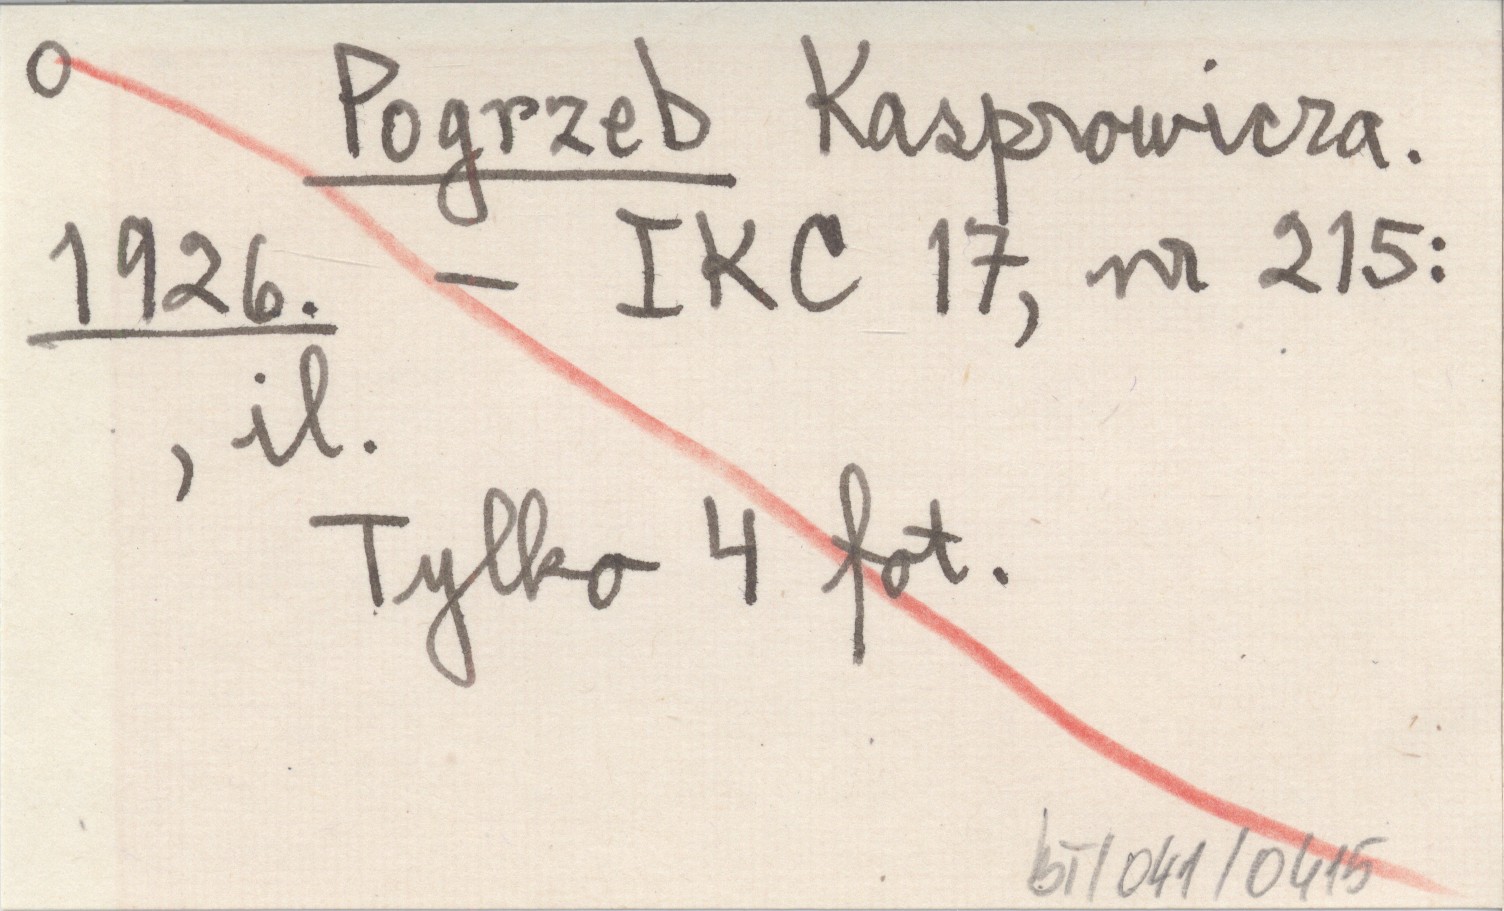 O Pogrzeb Kasprowicza.
1926. – IKC 17, nr 215:
, il.
Tylko 4 fot.
bī/041/0415